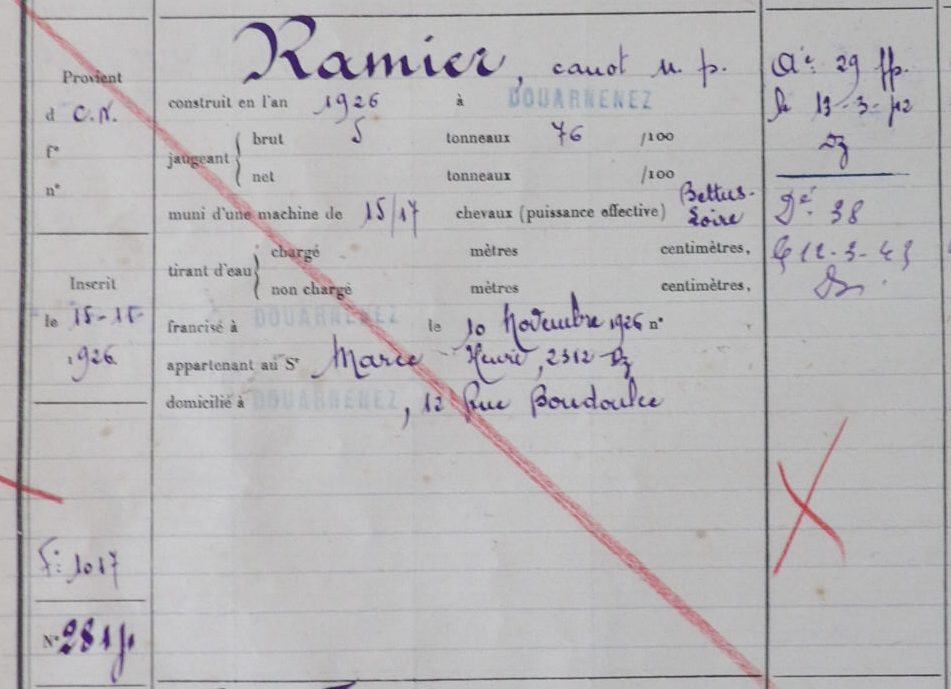 Provient
d C.N.
f°
n°
Inscrit
le 15-11-
1926
F: 1017
N° 2814
Ramier, canot m. p.
construit en l'an 1926 à DOUARNENEZ
jaugeant { brut 5 tonneaux 76 /100
net tonneaux /100
muni d'une machine de 15/17 chevaux (puissance effective) Bettus-
Loire
tirant d'eau { chargé mètres centimètres,
non chargé mètres centimètres,
francisé à DOUARNENEZ le 10 Novembre 1926 n°
appartenant au Sr Henri, 2312 Dz
domicilié à DOUARNENEZ, 12 Rue
29
le 13-3-42
Dz
38